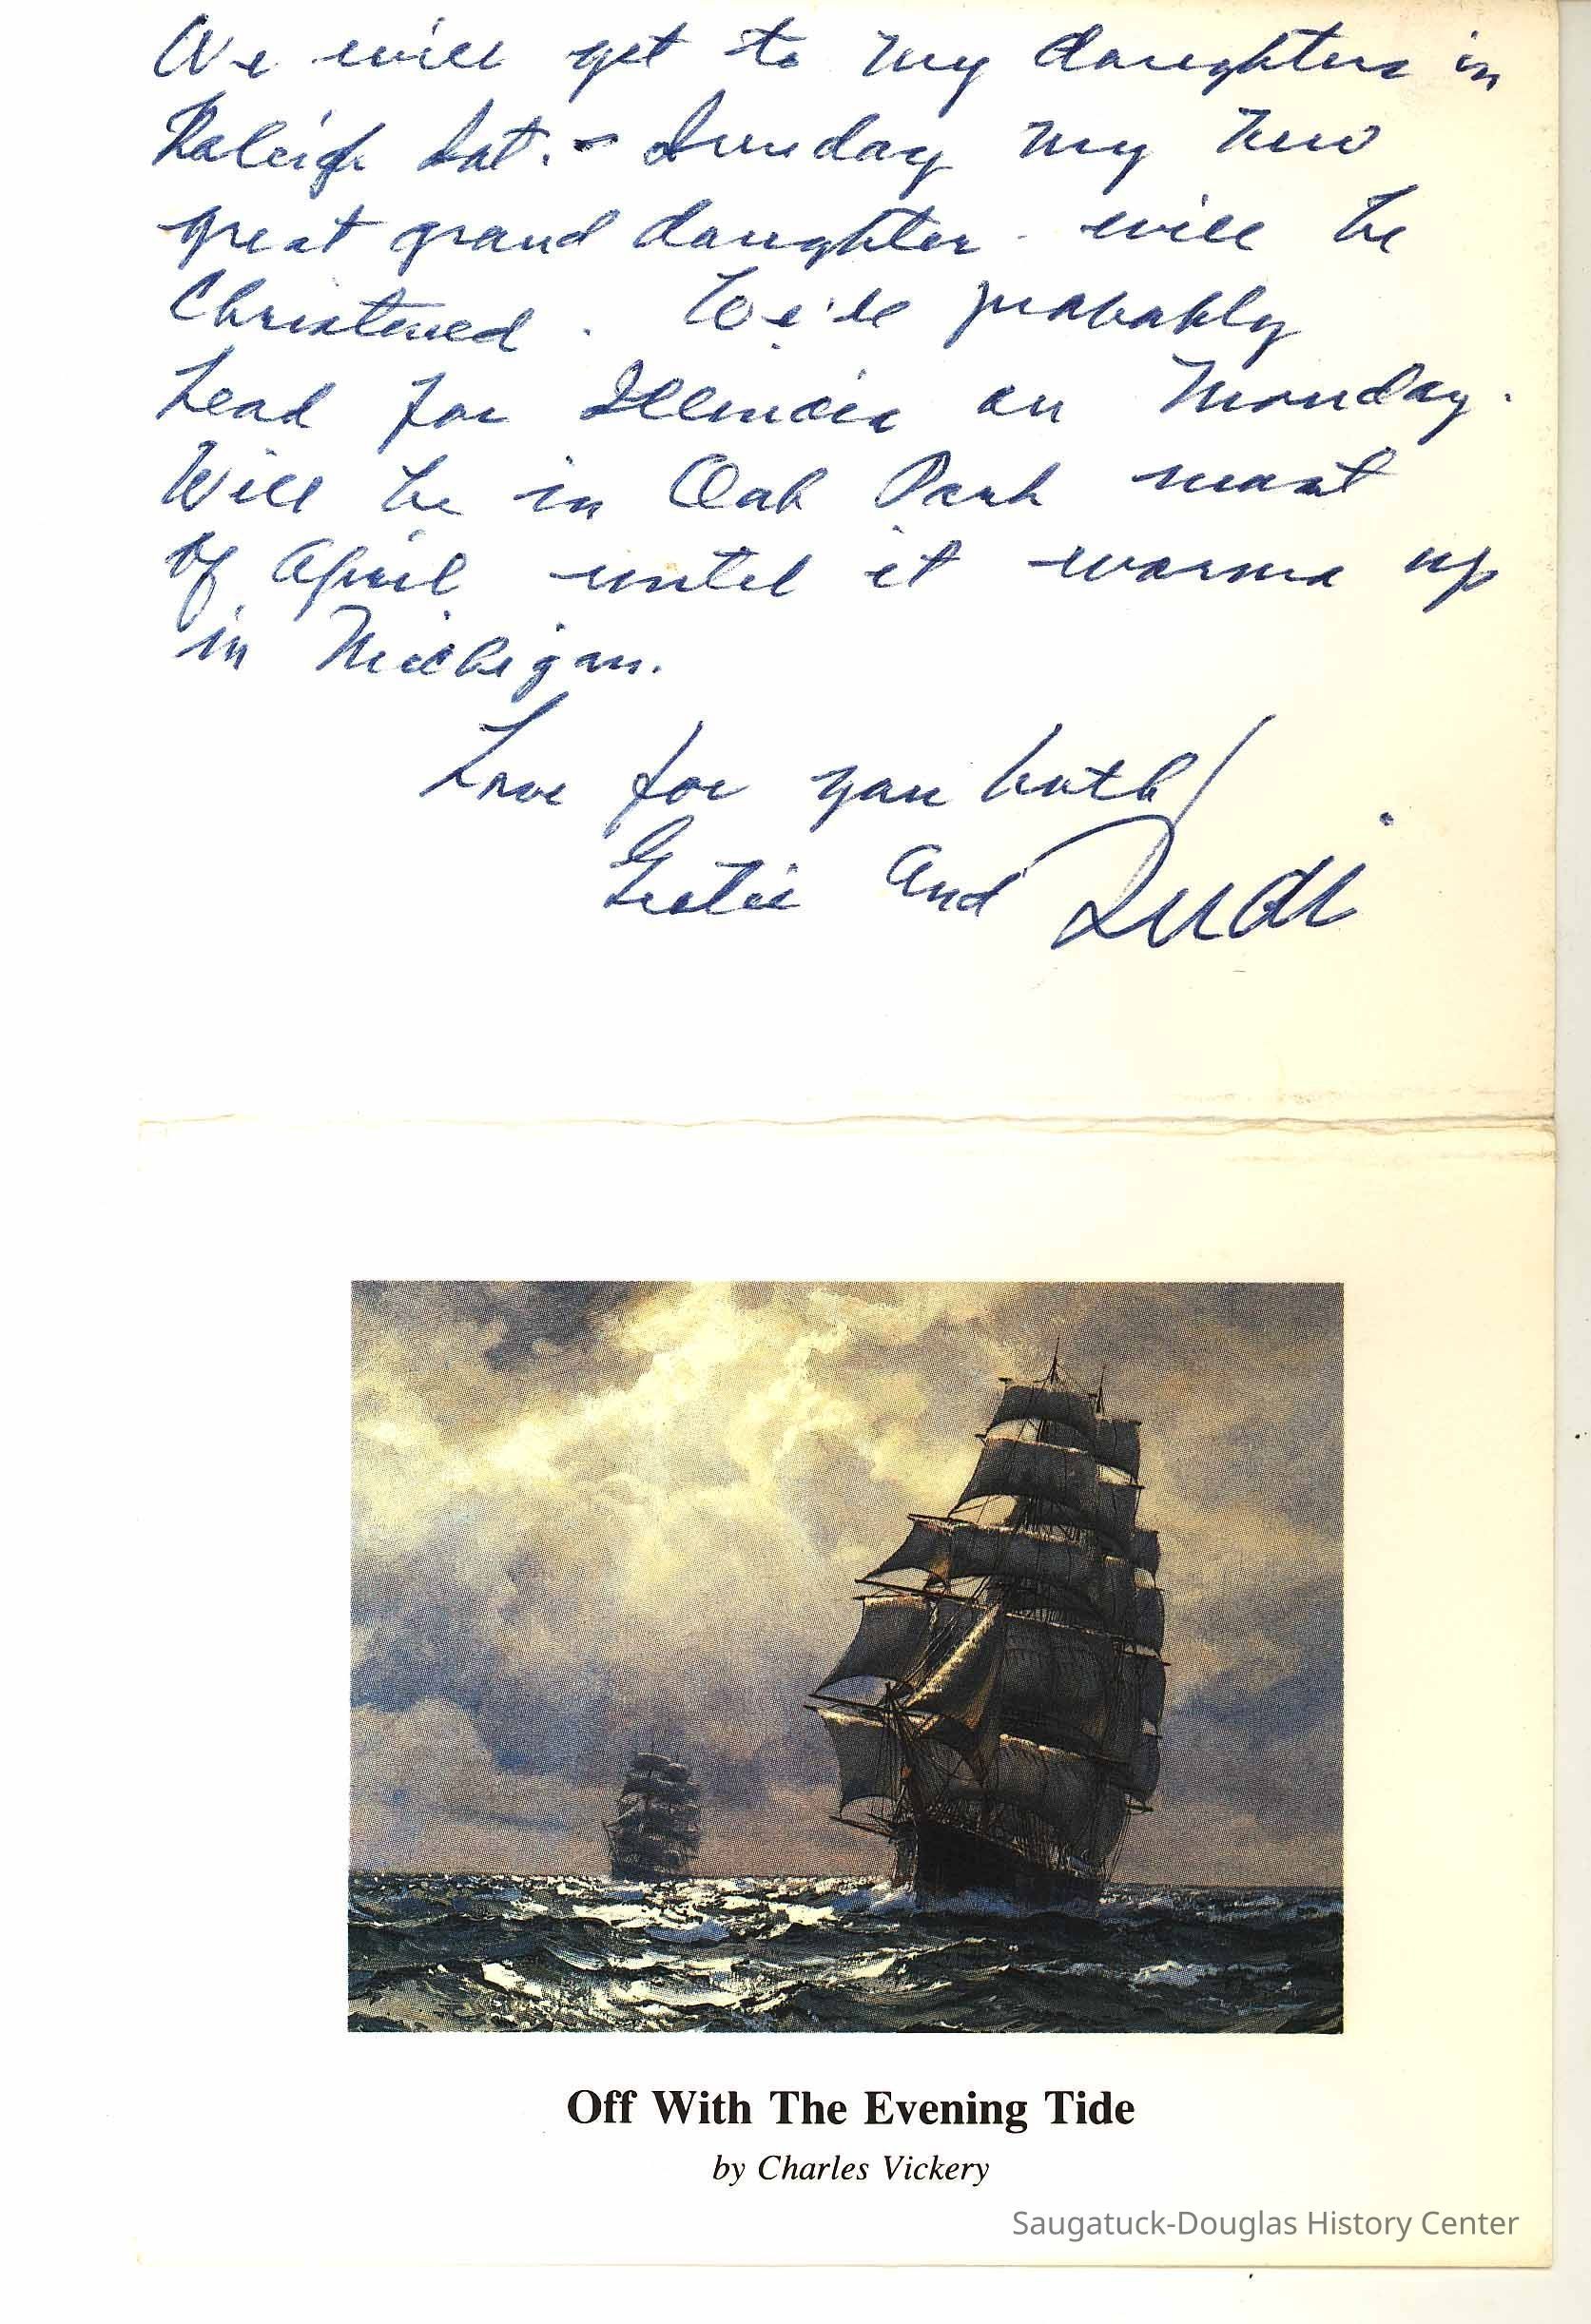 We will get to my daughters in
Raleigh Sat. - Sunday my new
great grand daughter will be
Christened. We'll probably
head for Illinois on Monday.
Will be in Oak Park most
of April until it warms up
in Michigan.
Love for you both!
and Rudi
Off With The Evening Tide
by Charles Vickery
Saugatuck-Douglas History Center